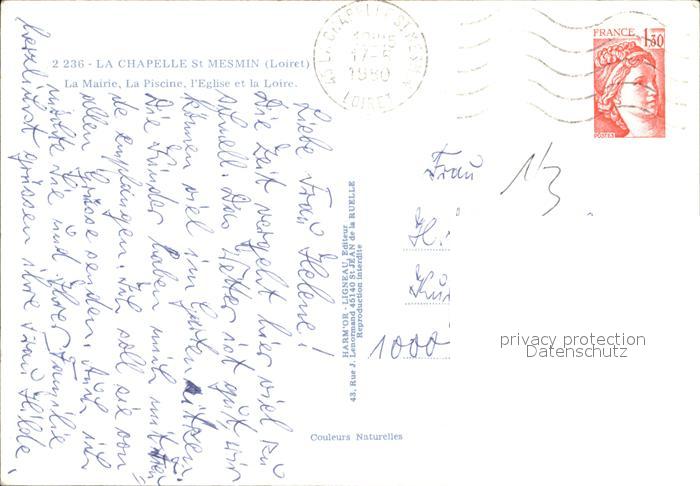 2 236 - LA CHAPELLE St MESMIN (Loiret)
La Mairie, La Piscine, l'Eglise et la Loire.
LA CHAPELLE ST MESMIN
17-5
1980
LOIRET
FRANCE
1,30
POSTES
Liebe Frau Helene!
Die Zeit vergeht hier viel zu
schnell. Das Wetter ist gut, wir
können viel im Garten sitzen.
Die Kinder haben mich mit
de empfangen. Ich soll sie von
allen Grüsse senden. Auch ich
möchte Sie und Ihrer Familie
herzlichst grüssen ihre Frau Hilde.
HARM'OR - LIGNEAU, Editeur
43, Rue J. Lenormand 45140 St JEAN de la RUELLE
Reproduction interdite
Couleurs Naturelles
Frau
1/3
H.
1000
privacy protection
Datenschutz